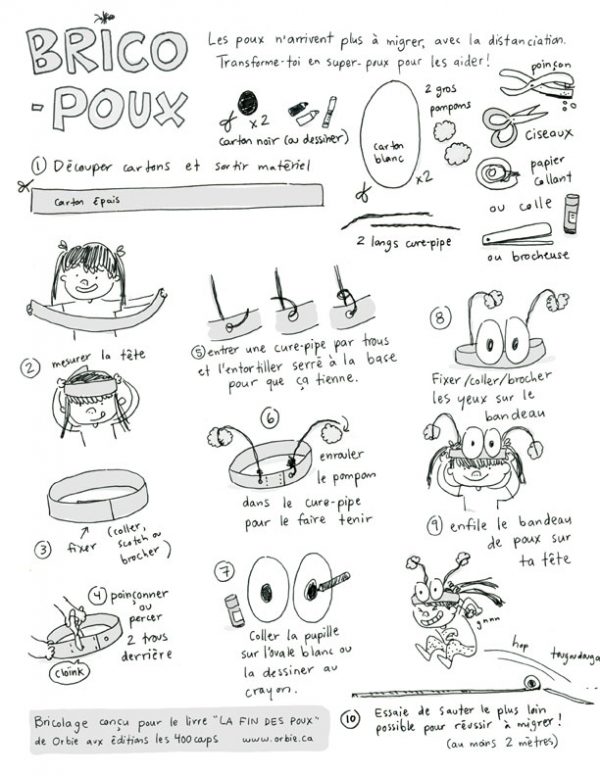 BRICO
-POUX
Les poux n'arrivent plus à migrer, avec la distanciation.
Transforme-toi en super-poux pour les aider!
x2
carton noir (ou dessiner)
carton
blanc
x2
2 gros
pompoms
poinçon
ciseaux
papier
collant
ou colle
ou brocheuse
2 longs cure-pipe
① Découper cartons et sortir matériel
carton épais
② mesurer la tête
③ fixer (coller,
scotch ou
brocher)
④ poinçonner
ou
percer
2 trous
derrière
cloink
⑤ entrer une cure-pipe par trous
et l'entortiller serré à la base
pour que ça tienne.
⑥
enrouler
le pompom
dans le cure-pipe
pour le faire tenir
⑦
Coller la pupille
sur l'ovale blanc ou
la dessiner au
crayon.
⑧
Fixer/coller/brocher
les yeux sur le
bandeau
⑨ enfile le bandeau
de poux sur
ta tête
gnnn
hop
tougoudougou
⑩ Essaie de sauter le plus loin
possible pour réussir à migrer!
(au moins 2 mètres)
Bricolage conçu pour le livre "LA FIN DES POUX"
de Orbie aux éditions les 400 coups www.orbie.ca